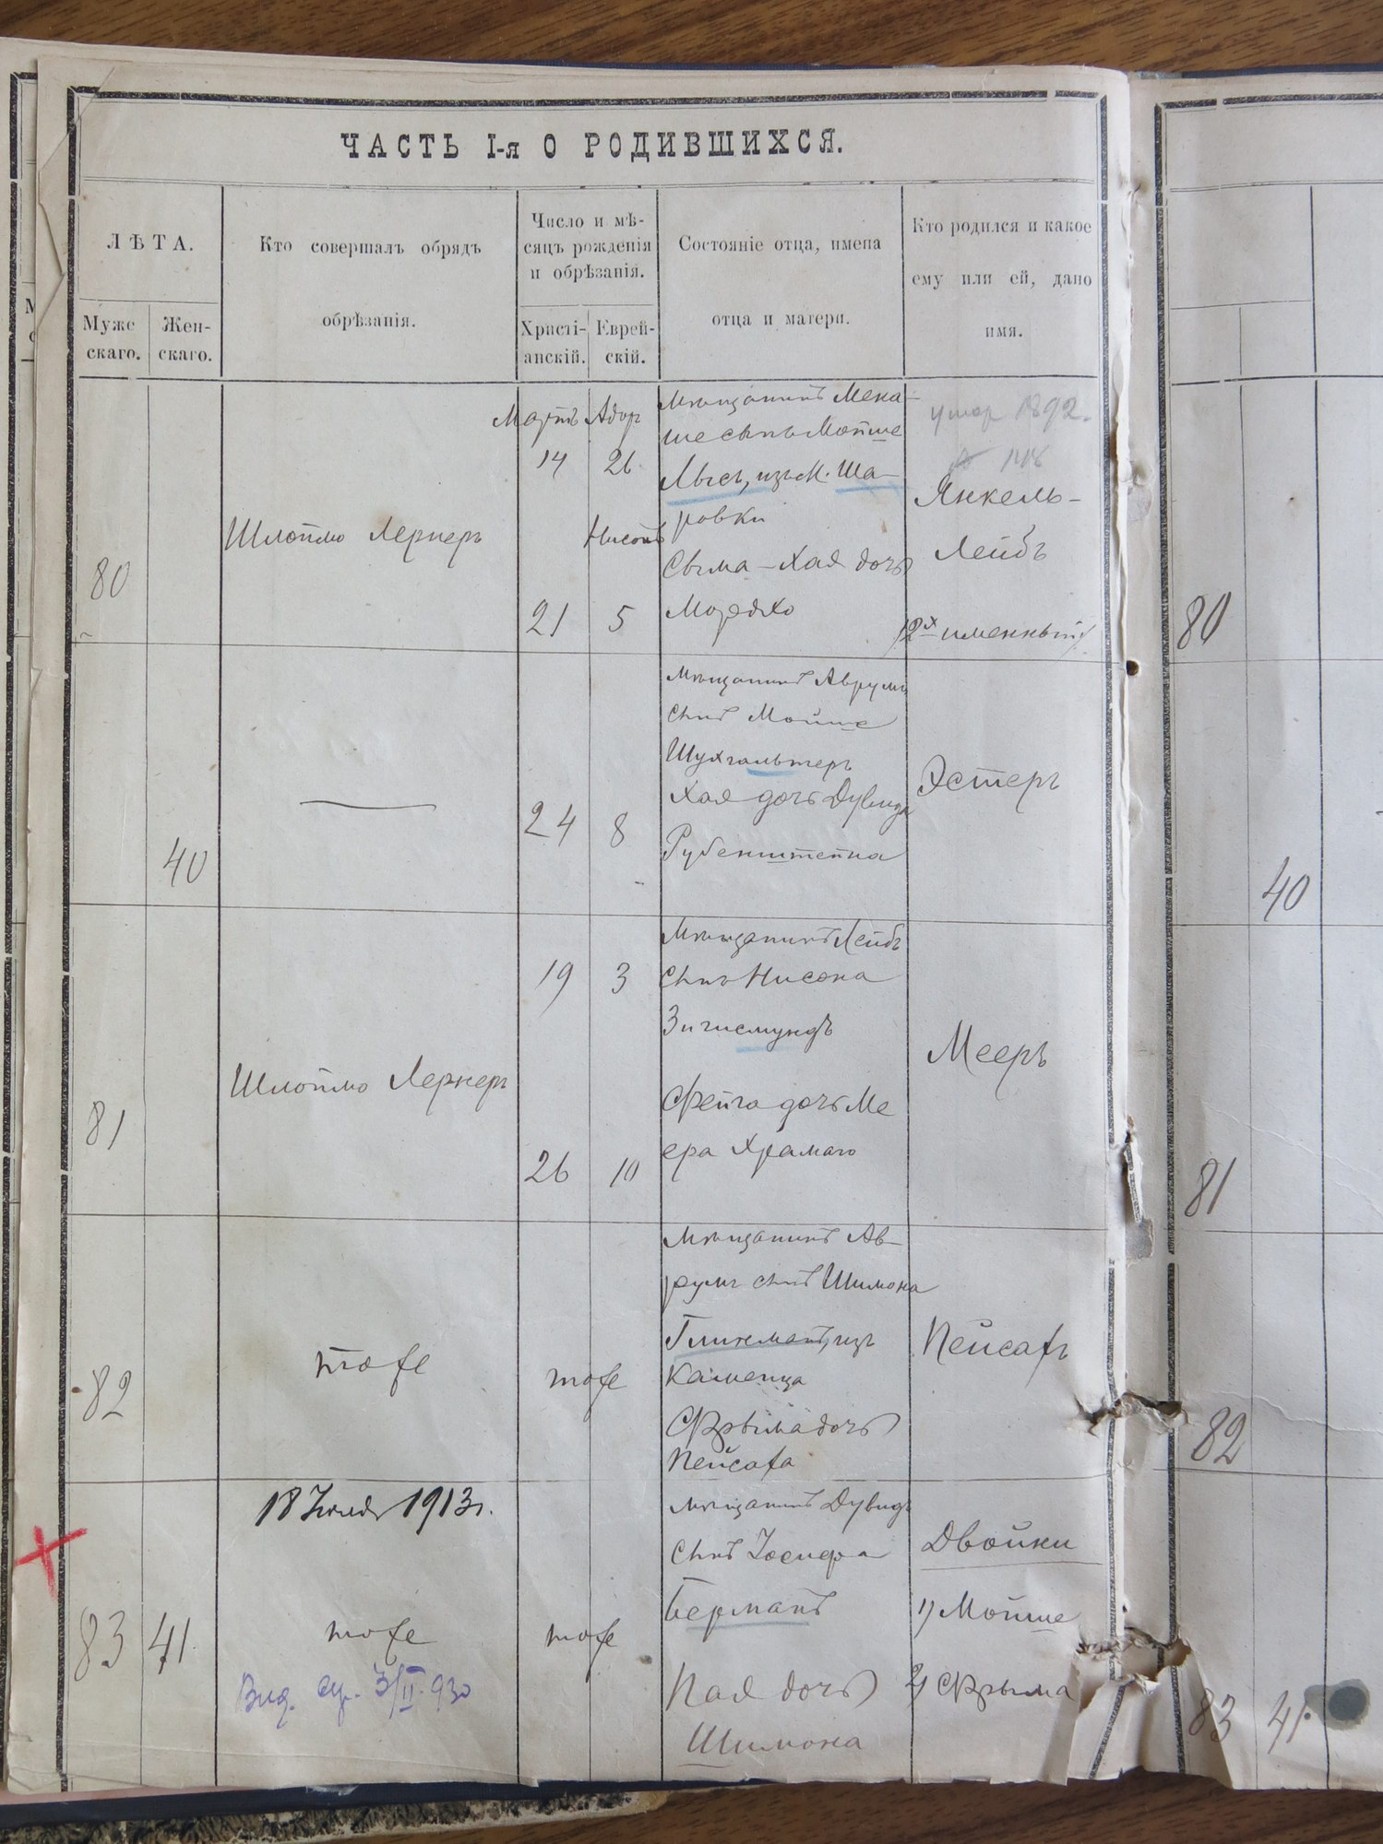 ЧАСТЬ I-я О РОДИВШИХСЯ.
ЛѢТА.
Муже
скаго.
Жен-
скаго.
Кто совершалъ обрядъ
обрѣзанія.
Число и мѣ-
сяцъ рожденія
и обрѣзанія.
Христі-
анскій.
Еврей-
скій.
Состояніе отца, имена
отца и матери.
Кто родился и какое
ему или ей, дано
имя.
80
Шлоймо Лернеръ
Мартъ Адор
14 26
Нисонъ
21 5
Мѣщанинъ Мена-
ше сынъ Мойше
изъ М. Ша-
ровки
Сыма-Хая дочь
Мордко
умер 1892.
Янкель-
Лейбъ
/2х именный/
80
40
24 8
Мѣщанинъ Аврумъ
сынъ Мойше
Шухгальтеръ
Хая дочь Дувида
Рубенштейна
Эстеръ
40
81
Шлоймо Лернеръ
19 3
26 10
Мѣщанинъ Лейбъ
сынъ Нисона
Зигисмундъ
Фейга дочь Ме
ера Храмаго
Мееръ
81
82
тоже
тоже
Мѣщанинъ Ав-
румъ сынъ Шимона
Гликманъ, изъ
Каменца
Фрыма дочь
Пейсаха
Пейсахъ
82
18 Іюля 1913г.
83 41
тоже
Вид. 3/II 930
тоже
Мѣщанинъ Дувидъ
сынъ Іосифа
Берманъ
Пая дочь
Шимона
Двойни
1) Мойше
2) Фрыма
83 41